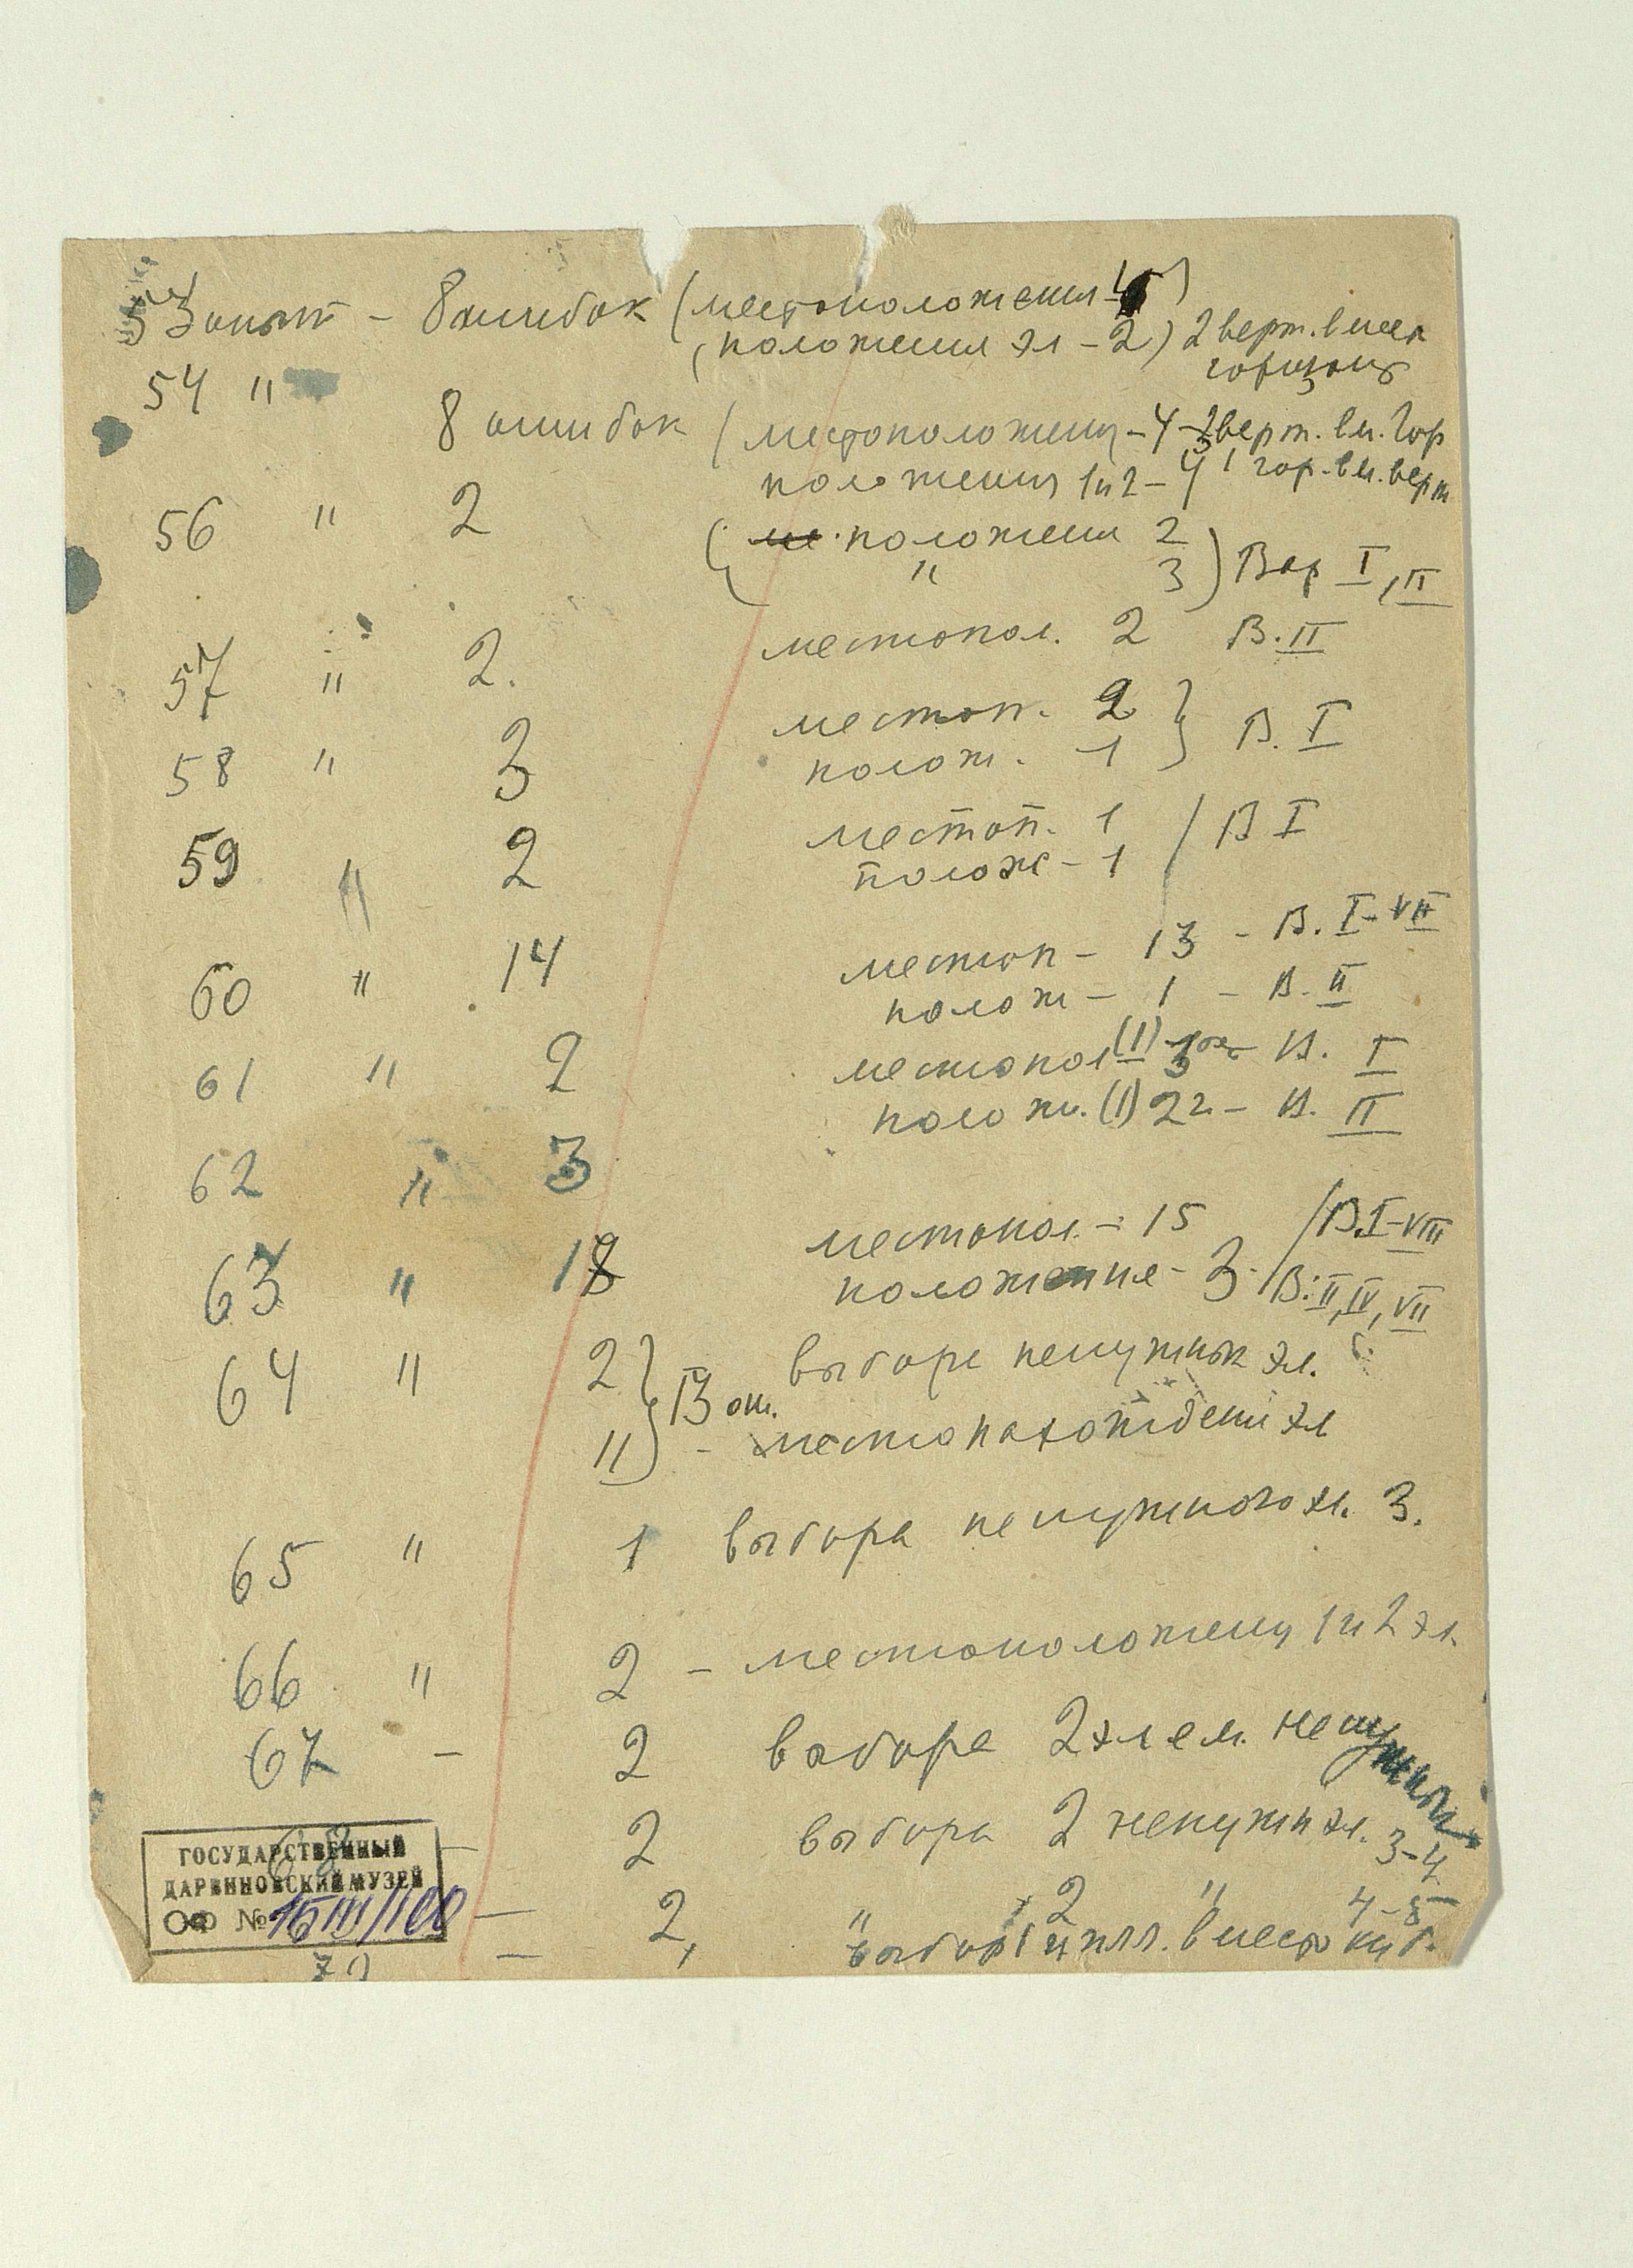 53 опыт – 8 ошибок (местоположения
(положения эл – 2) 2 верт. вмест
горизонт
54 "
8 ошибок (местоположения – 4 – верт. вм. гор
положения 1 и 2 – 4 1 гор. вм. верт
56 " 2 положения 2
" 3) Вар I, II
57 " 2. местопол. 2 В. II
58 " 3 местоп. 2 } В. I
полож. 1
59 " 2 местоп. 1 / В I
полож – 1
60 " 14 местоп – 13 – В. I–VII
полож – 1 – В. II
61 " 2 местопол (1) – В. I
полож. (1) 2 – В. II
62 " 3
63 " 18 местопол. – 15 / В. I–VIII
положение – 3 – В: II, IV, VII
64 " 2 } 13 ош. выбора ненужных эл.
11 – местонахождения эл
65 " 1 выбора ненужного эл. 3.
66 " 2 – местоположения 1 и 2 эл.
67 – 2 выбора 2 элем. ненужных
68 – 2 выбора 2 ненужн эл. 3–4
– 2, " 2 " 4–5
70 – выбор 1 вместо куб.
ГОСУДАРСТВЕННЫЙ
ДАРВИНОВСКИЙ МУЗЕЙ
ОФ № 15111/100